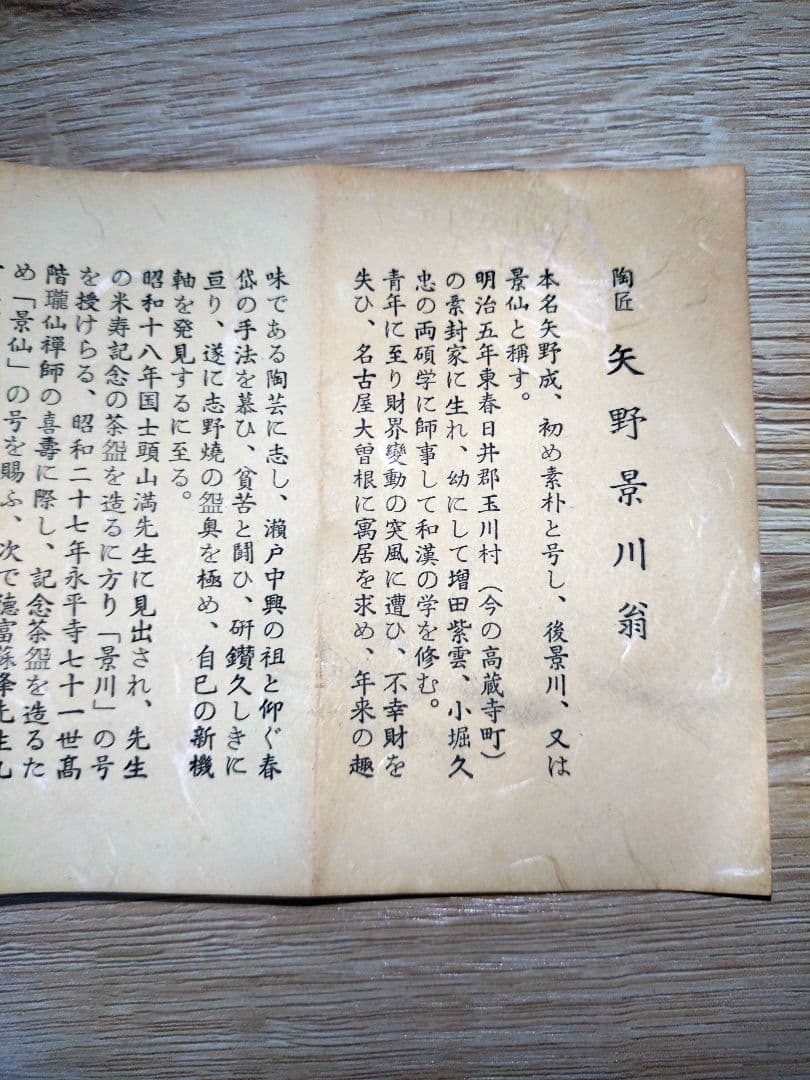 陶匠 矢野景川翁
本名矢野成、初め素朴と号し、後景川、又は
景仙と稱す。
明治五年東春日井郡玉川村（今の高蔵寺町）
の素封家に生れ、幼にして増田紫雲、小堀久
忠の両碩学に師事して和漢の学を修む。
青年に至り財界變動の突風に遭ひ、不幸財を
失ひ、名古屋大曽根に寓居を求め、年来の趣
味である陶芸に志し、瀬戸中興の祖と仰ぐ春
岱の手法を慕ひ、貧苦と闘ひ、研鑚久しきに
亘り、遂に志野焼の盌奥を極め、自己の新機
軸を発見するに至る。
昭和十八年国士頭山満先生に見出され、先生
の米寿記念の茶盌を造るに方り「景川」の号
を授けらる、昭和二十七年永平寺七十一世髙
階瓏仙禪師の喜壽に際し、記念茶盌を造るた
め「景仙」の号を賜ふ、次で徳富蘇峰先生